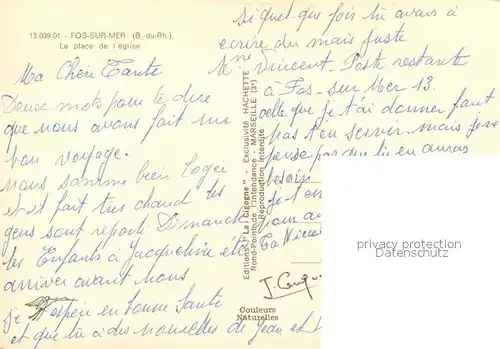 13.039.01 - FOS-SUR-MER (B.-du-Rh.).
La place de l'église
Ma Chère Tante
Deux mots pour te dire
que nous avons fait un
bon voyage.
nous somme bien logée
et il fait très chaud les
gens sont reparti Dimanche
les Enfants à Jacqueline été
arriver avant nous
je t'espère en bonne Santé
et que tu a des nouvelles de Jean et
si quel que fois tu avais à
ecrire du mais juste
Me Vincent - Poste restante
à Fos-sur Mer 13.
celle que je t'ai donner faut
pas t'en servir. mais je ne
pense pas que tu en auras
besoin
je t'en
pour
Ta Nièce
Editions "La Cigogne" - Exclusivité HACHETTE
Rond-Point de l'Intendance - MARSEILLE (3e)
Reproduction interdite
Couleurs
Naturelles
privacy protection
Datenschutz